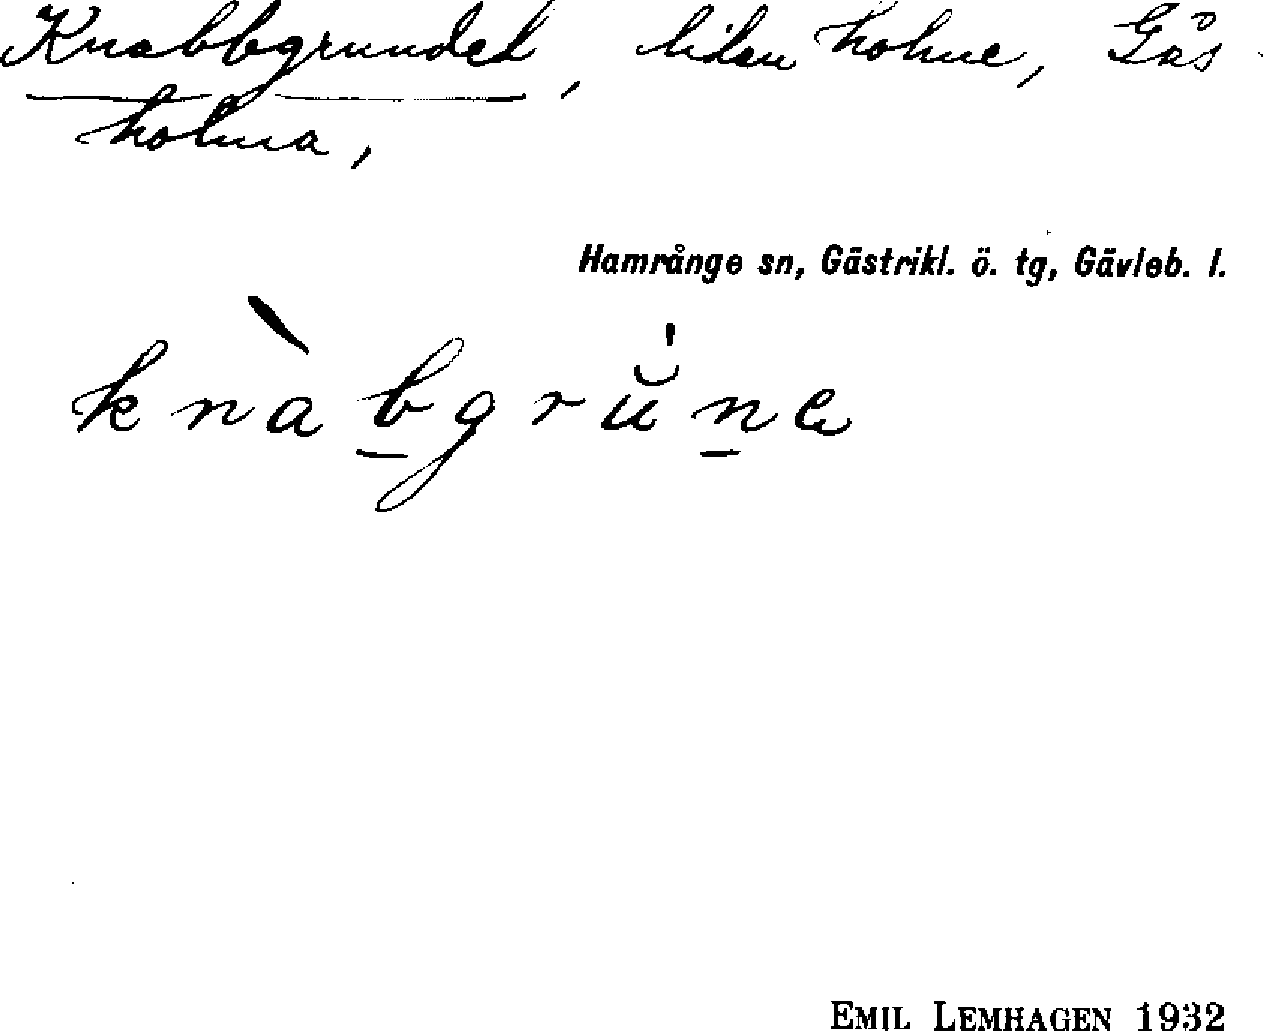 Knabbgrundet, liten holme, Gås-
holma,
Hamrånge sn, Gästrikl. ö. tg, Gävleb. l.
knàbgrŭne
EMIL LEMHAGEN 1932